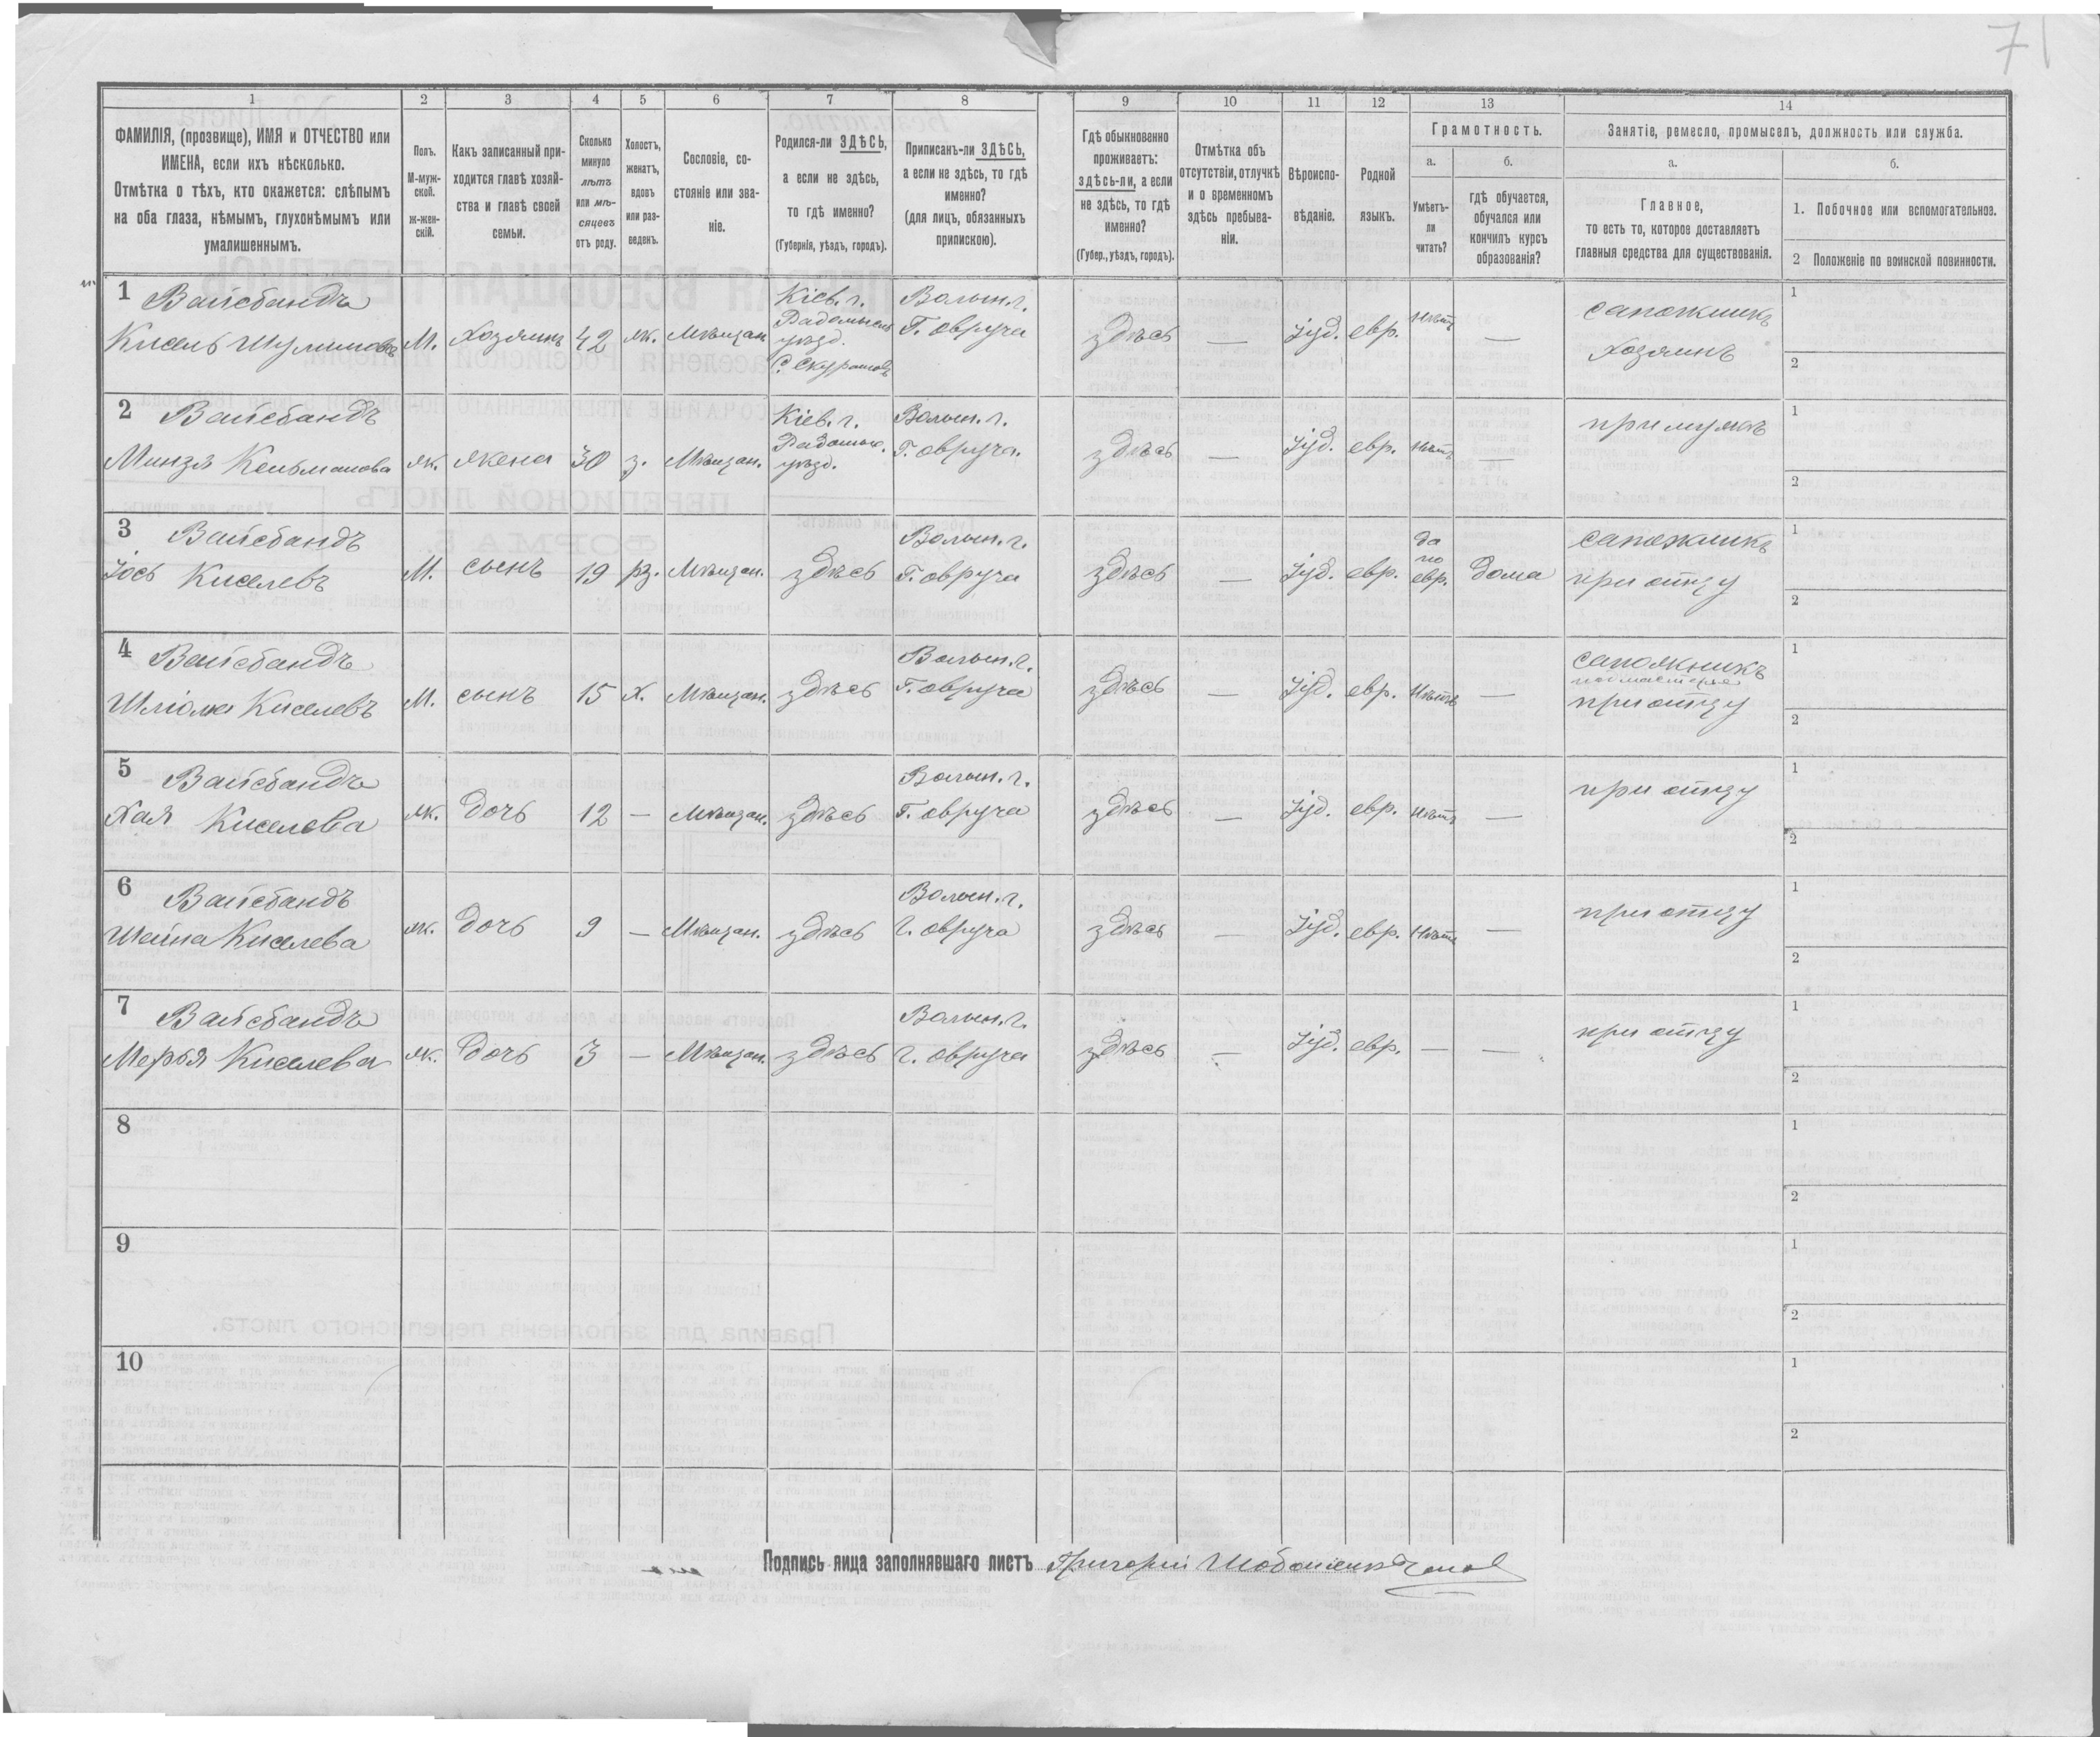 71
1 2 3 4 5 6 7 8 9 10 11 12 13 14
ФАМИЛІЯ, (прозвище), ИМЯ и ОТЧЕСТВО или
ИМЕНА, если ихъ нѣсколько.
Отмѣтка о тѣхъ, кто окажется: слѣпымъ
на оба глаза, нѣмымъ, глухонѣмымъ или
умалишеннымъ.
Полъ.
М-муж-
ской.
ж-жен-
скій.
Какъ записанный при-
ходится главѣ хозяй-
ства и главѣ своей
семьи.
Сколько
минуло
лѣтъ
или мѣ-
сяцевъ
отъ роду.
Холостъ,
женатъ,
вдовъ
или раз-
веденъ.
Сословіе, со-
стояніе или зва-
ніе.
Родился-ли ЗДѢСЬ,
а если не здѣсь,
то гдѣ именно?
(Губернія, уѣздъ, городъ).
Приписанъ-ли ЗДѢСЬ,
а если не здѣсь, то гдѣ
именно?
(для лицъ, обязанныхъ
припискою).
Гдѣ обыкновенно
проживаетъ:
здѣсь-ли, а если
не здѣсь, то гдѣ
именно?
(Губер., уѣздъ, городъ).
Отмѣтка объ
отсутствіи, отлучкѣ
и о временномъ
здѣсь пребыва-
ніи.
Вѣроиспо-
вѣданіе.
Родной
языкъ.
Грамотность.
а.
Умѣетъ-
ли
читать?
б.
гдѣ обучается,
обучался или
кончилъ курсъ
образованія?
Занятіе, ремесло, промыселъ, должность или служба.
а.
Главное,
то есть то, которое доставляетъ
главныя средства для существованія.
б.
1. Побочное или вспомогательное.
2 Положеніе по воинской повинности.
1 Вайсбандъ
Кисель
М.
Хозяинъ
42
ж.
Мѣщан.
Кіев. г.
Радомысл.
уѣзд.
Волын. г.
Г. Овруча
здѣсь
—
Іуд.
евр.
нѣтъ
—
сапожникъ
Хозяинъ
1
2
2 Вайсбандъ
Кельманова
ж.
жена
30
з.
Мѣщан.
Кіев. г.
Радомыс.
уѣзд.
Волын. г.
Г. Овруча.
здѣсь
—
Іуд.
евр.
нѣтъ
—
при мужѣ
1
2
3 Вайсбандъ
Іось Киселевъ
М.
сынъ
19
рз.
Мѣщан.
здѣсь
Волын. г.
Г. Овруча
здѣсь
—
Іуд.
евр.
да
по
евр.
дома
сапожникъ
при отцу
1
2
4 Вайсбандъ
Шліома Киселевъ
М.
сынъ
15
х.
Мѣщан.
здѣсь
Волын. г.
Г. Овруча
здѣсь
—
Іуд.
евр.
нѣтъ
—
сапожникъ
подмастерье
при отцу
1
2
5 Вайсбандъ
Хая Киселева
ж.
дочь
12
—
Мѣщан.
здѣсь
Волын. г.
Г. Овруча
здѣсь
—
Іуд.
евр.
нѣтъ
—
при отцу
1
2
6 Вайсбандъ
Шейна Киселева
ж.
дочь
9
—
Мѣщан.
здѣсь
Волын. г.
г. Овруча
здѣсь
—
Іуд.
евр.
нѣтъ
—
при отцу
1
2
7 Вайсбандъ
Мерья Киселева
ж.
дочь
3
—
Мѣщан.
здѣсь
Волын. г.
г. Овруча
здѣсь
—
Іуд.
евр.
—
—
при отцу
1
2
8
1
2
9
1
2
10
1
2
Подпись лица заполнявшаго листъ Григорій